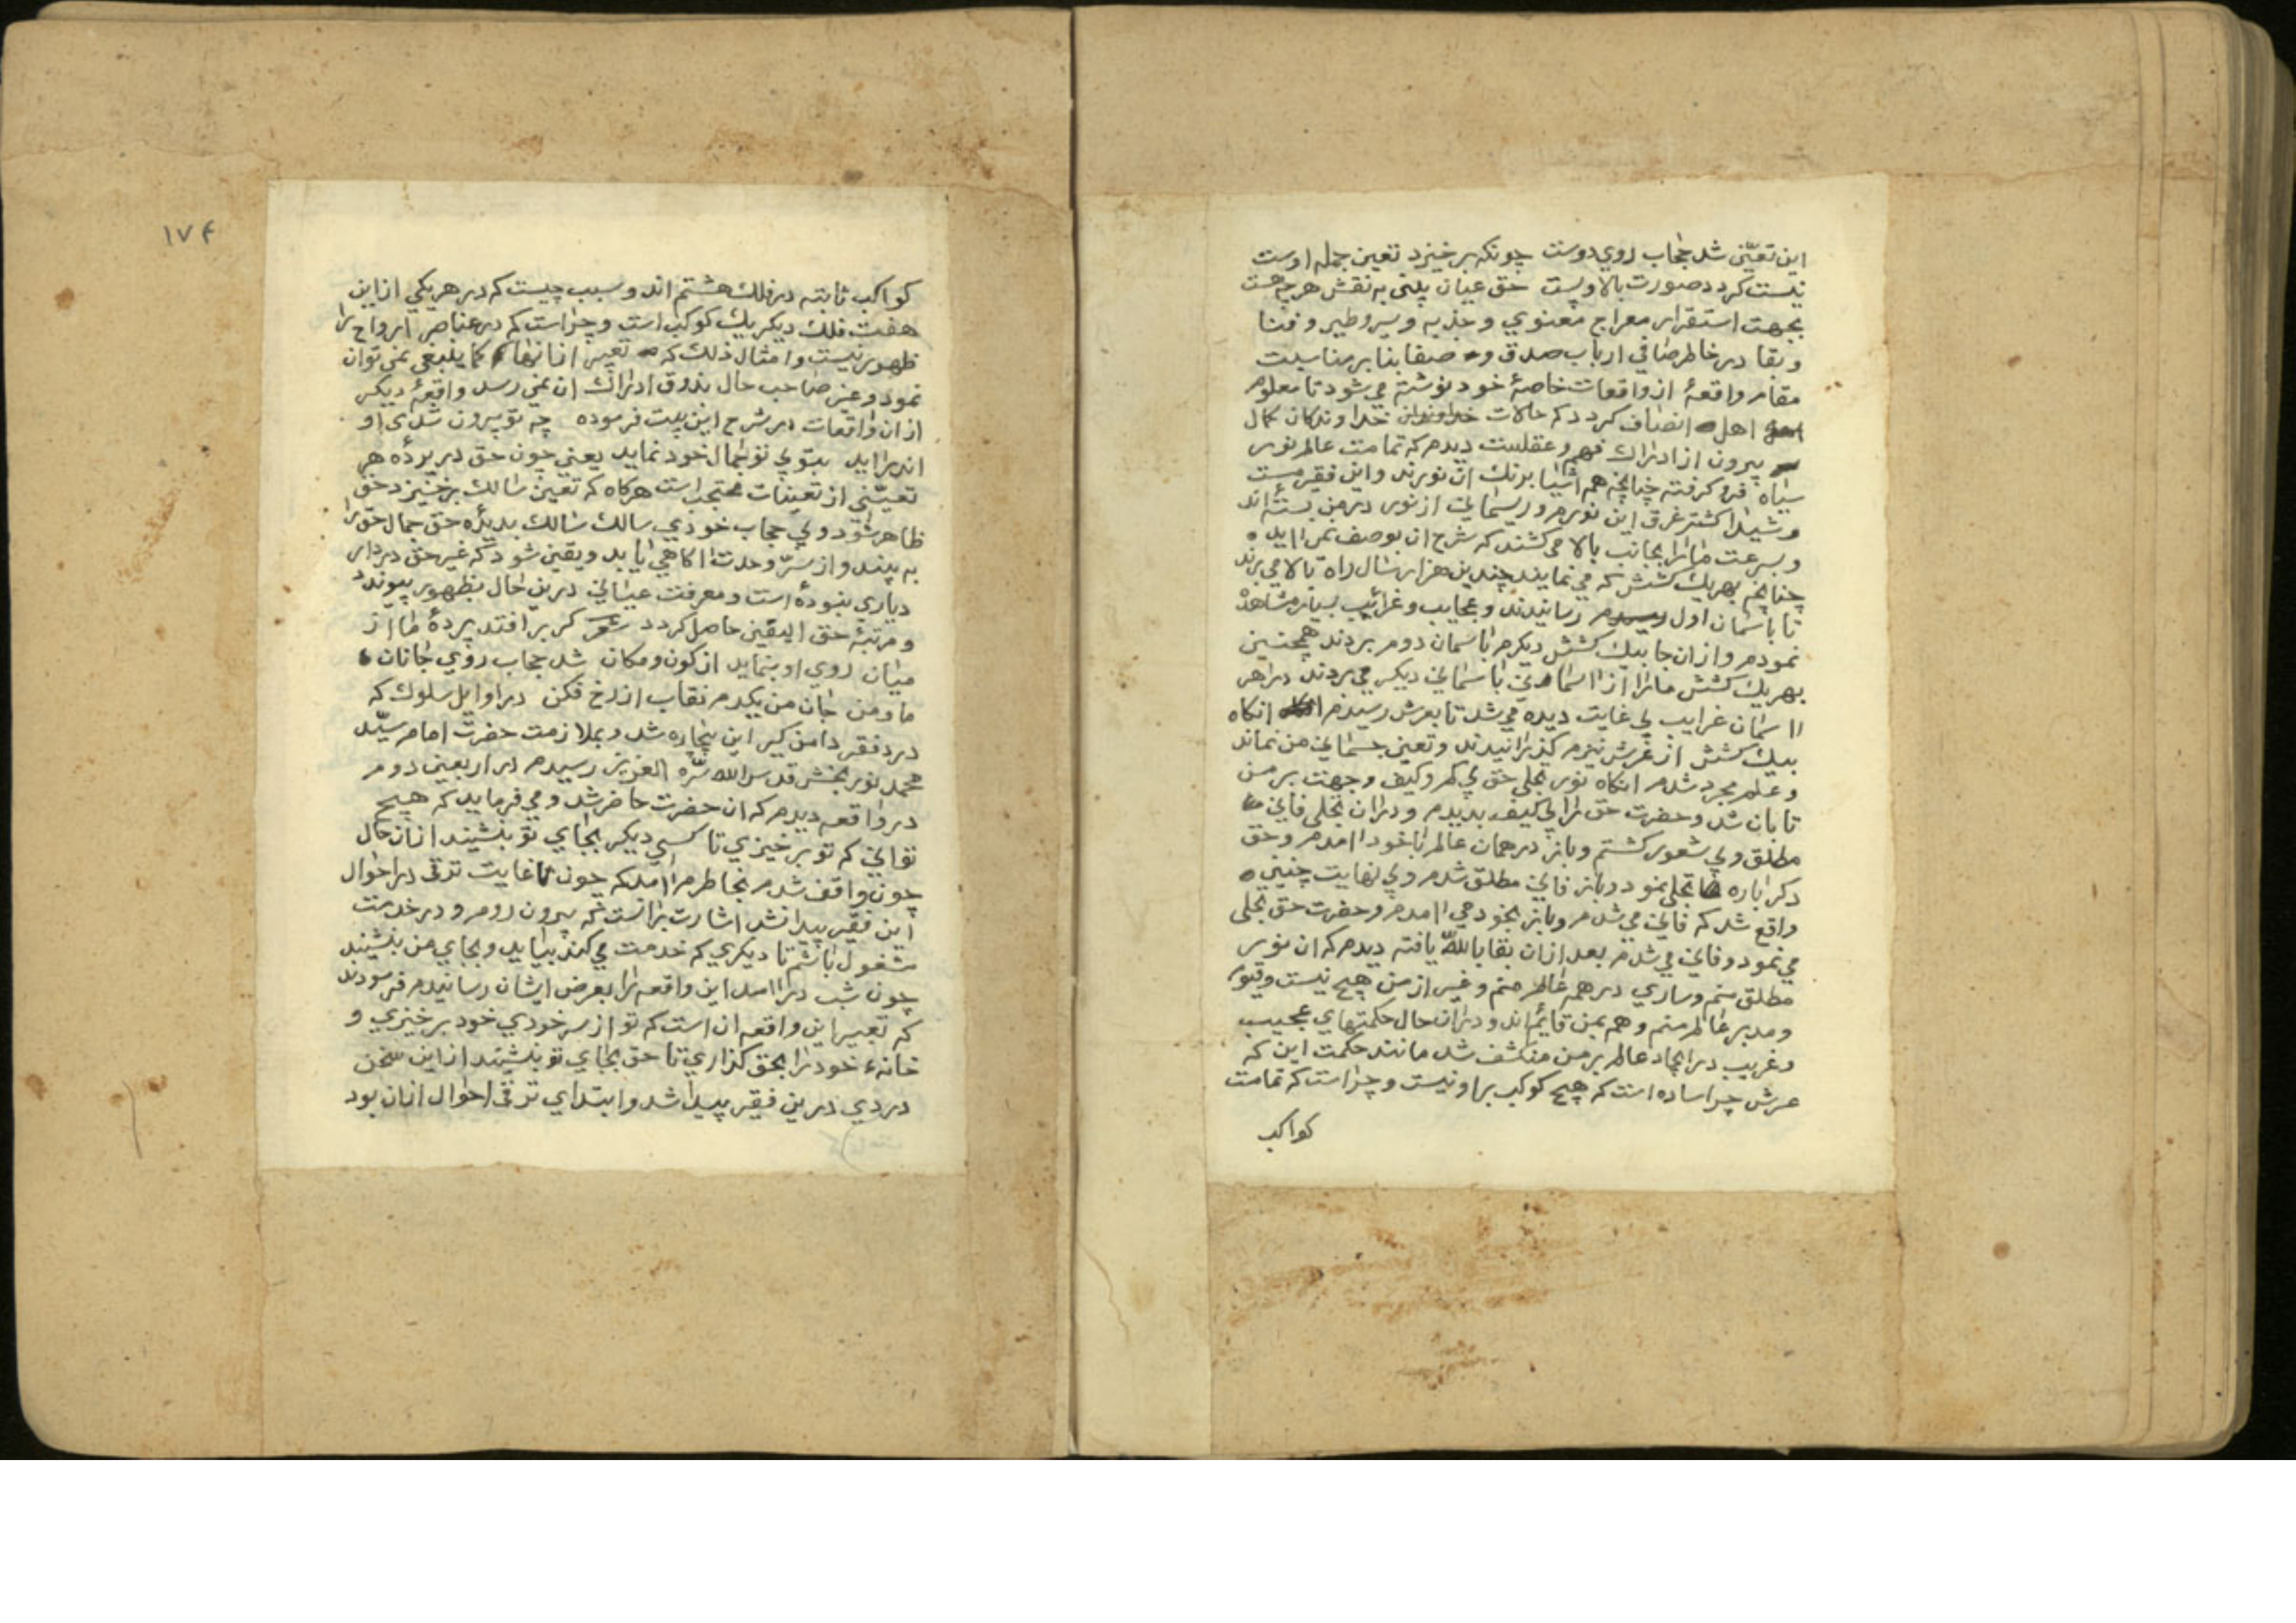 این تعیّن شد حجاب روی دوست چونکه برخیزد تعین جمله اوست
نیست کردد صورت بالا وپست حق عیان بینی به نقش هرچه هست
بجهت استقرار معراج معنوی و جذبه و سیر وطیر و فنا
و بقا در خاطر صافی ارباب صدق و صفا بنا بر مناسبت
مقام واقعهٔ از واقعات خاصهٔ خود نوشته می شود تا معلوم
اهل انصاف کردد که حالات خداوندان کمال
بیرون از ادراک فهم و عقلست دیدم که تمامت عالم نور
سیاه فرو کرفته چنانچه همه اشیا برنک ان نورند و این فقیر مست
و شیدا کشته غرق این نورم و ریسمانی از نور در من بسته اند
و بسرعت ما را بجانب بالا می کشند که شرح ان بوصف نمی اید
چنانچه بهر یک کشش که می نمایند چندین هزار سال راه بالا می برند
تا باسمان اول رسانیدند و عجایب و غرائب بسیار مشاهده
نمودم و از ان جا بیک کشش دیکرم باسمان دوم بردند همچنین
بهر یک کشش ما را از اسمانی باسمانی دیکر می بردند و در هر
اسمان غرایب بی غایت دیده می شد تا بعرش رسیدم انکاه
بیک کشش از عرش نیزم کذرانیدند و تعین جسمانی من نماند
و علم مجرد شدم انکاه نور تجلی حق بی کم و کیف و جهت بر من
تابان شد و حضرت حق را بی کیف بدیدم و در ان تجلی فانی
مطلق و بی شعور کشتم و باز در همان عالم با خود امدم و حق
دکر باره تجلی نمود و باز فانی مطلق شدم و بی نهایت چنین
واقع شد که فانی می شدم و باز بخود می امدم و حضرت حق تجلی
می نمود و فانی می شدم بعد از ان بقا بالله یافته دیدم که ان نور
مطلق منم و ساری در همه عالم منم و غیر از من هیچ نیست و قیوم
و مدبر عالم منم و همه بمن قائم اند و در ان حال حکمتهای عجیب
و غریب در ایجاد عالم بر من منکشف شد مانند حکمت این که
عرش چرا ساده است که هیچ کوکب بر او نیست و چراست که تمامت
کواکب
١٧۴
کواکب ثابته در فلک هشتم اند و سبب چیست که در هر یکی از این
هفت فلک دیکر یک کوکب است و چراست که در عناصر ارواح را
ظهور نیست و امثال ذلک که تعبیر از انها کما ینبغی نمی توان
نمود و غیر صاحب حال بذوق ادراک ان نمی رسد واقعهٔ دیکر
از ان واقعات در شرح این بیت فرموده چه تو بیرون شدی او
اندر اید بتو بی تو جمال خود نماید یعنی چون حق در پردهٔ هر
تعیّنی از تعینات محتجب است هرکاه که تعین سالک برخیزد حق
ظاهر شود و بی حجاب خودی سالک سالک بدیدهٔ حق جمال حق را
به بیند و از سرّ وحدت اکاهی یابد و یقین شود که غیر حق در دار
دیاری نبوده است و معرفت عیانی درین حال بظهور پیوندد
و مرتبهٔ حق الیقین حاصل کردد شعر کر بر افتد پردهٔ ما از
میان روی او بنماید از کون و مکان شد حجاب روی جانان
ما و من جان من یکدم نقاب از رخ فکن در اوایل سلوک که
درد فقر دامن کیر این بیچاره شد و بملازمت حضرت امام سیّد
محمد نوربخش قدس الله سرّه العزیز رسیدم در اربعین دوم
در واقعه دیدم که ان حضرت حاضر شد و می فرماید که هیچ
توانی که تو برخیزی تا کسی دیکر بجای تو بنشیند از ان حال
چون واقف شدم بخاطرم امد که چون تا غایت ترقی در احوال
این فقیر پیدا نشد اشارت برانست که بیرون روم و در خدمت
مشغول باشم تا دیکری که خدمت می کند بیاید و بجای من بنشیند
چون شب در امد این واقعه را بعرض ایشان رسانیدم فرمودند
که تعبیر این واقعه ان است که تو از سر خودی خود برخیزی و
خانهٔ خود را بحق کذاری تا حق بجای تو بنشیند از این سخن
دردی درین فقیر پیدا شد و ابتدای ترقی احوال از ان بود